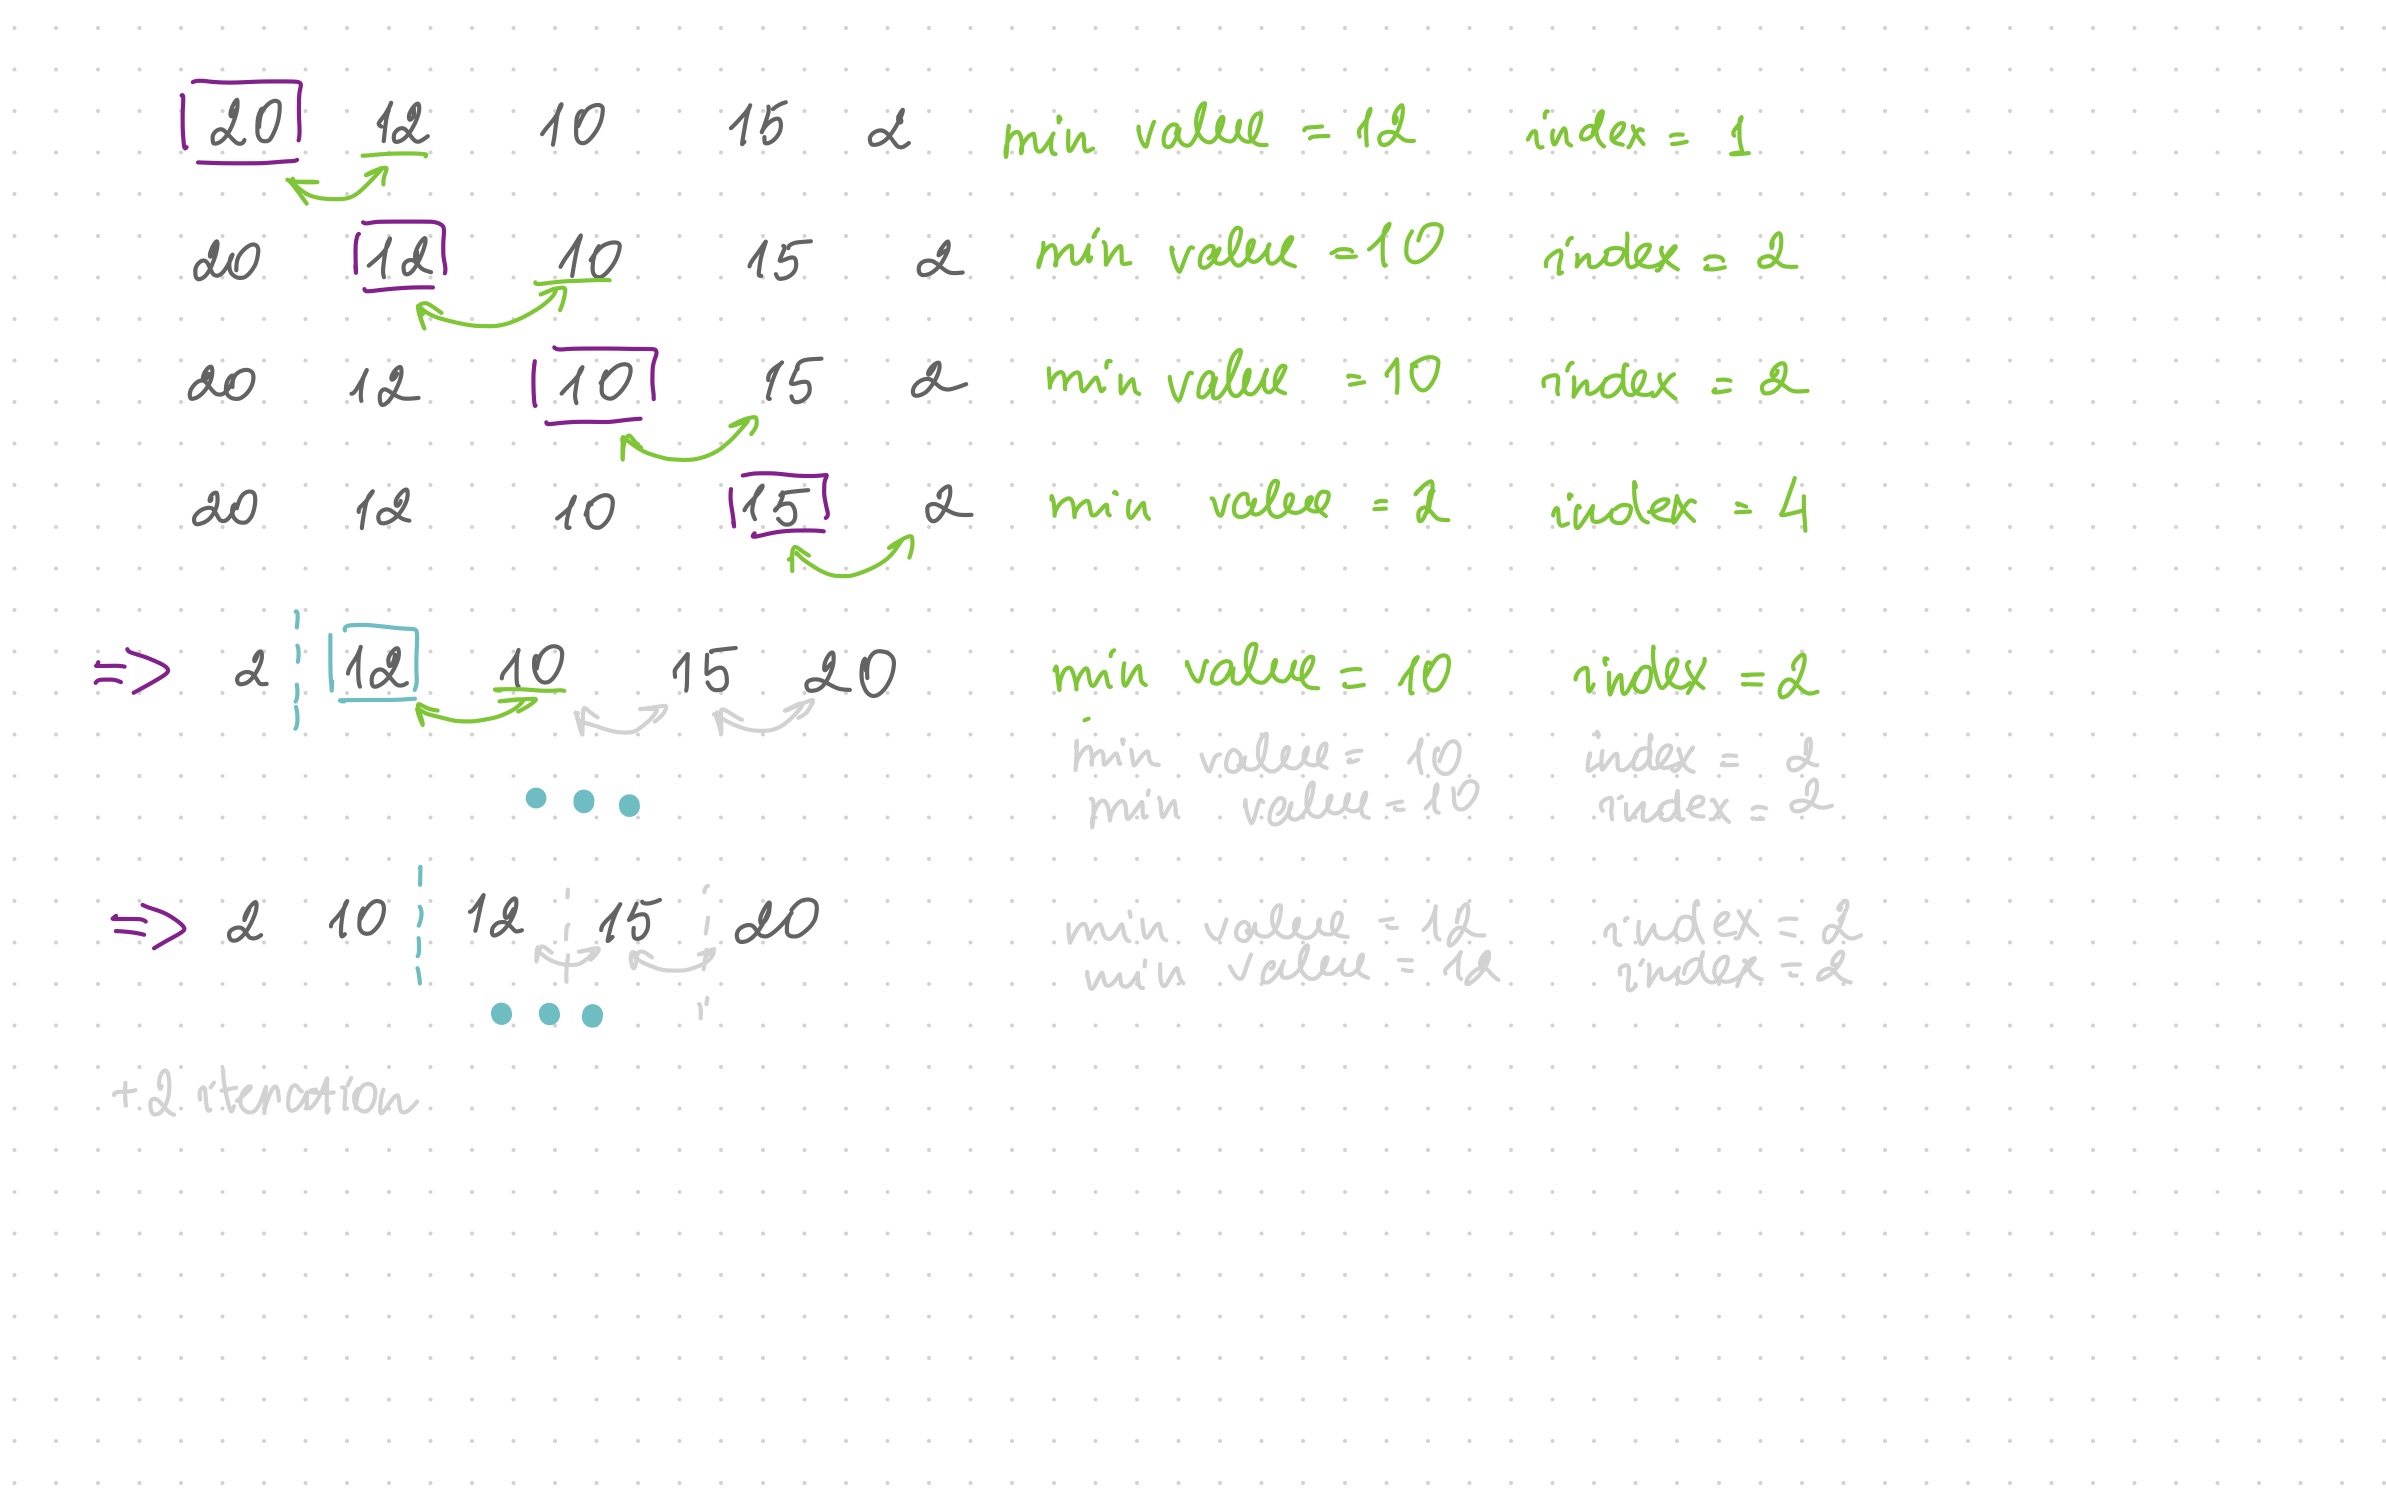 20 12 10 15 2 min value = 12 index = 1
20 12 10 15 2 min value = 10 index = 2
20 12 10 15 2 min value = 10 index = 2
20 12 10 15 2 min value = 2 index = 4
=> 2 12 10 15 20 min value = 10 index = 2
min value = 10 index = 2
... min value = 10 index = 2
=> 2 10 12 15 20 min value = 12 index = 2
min value = 12 index = 2
...
+2 iteration